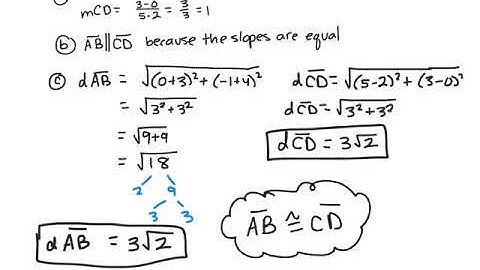 mCD = 3-0/5-2 = 3/3 = 1
(b) A̅B̅ || C̅D̅ because the slopes are equal
(c) dA̅B̅ = √(0+3)²+(-1+4)²
= √3²+3²
= √9+9
= √18
2 9
3 3
dA̅B̅ = 3√2
dC̅D̅ = √(5-2)²+(3-0)²
dC̅D̅ = √3²+3²
dC̅D̅ = 3√2
A̅B̅ ≅ C̅D̅